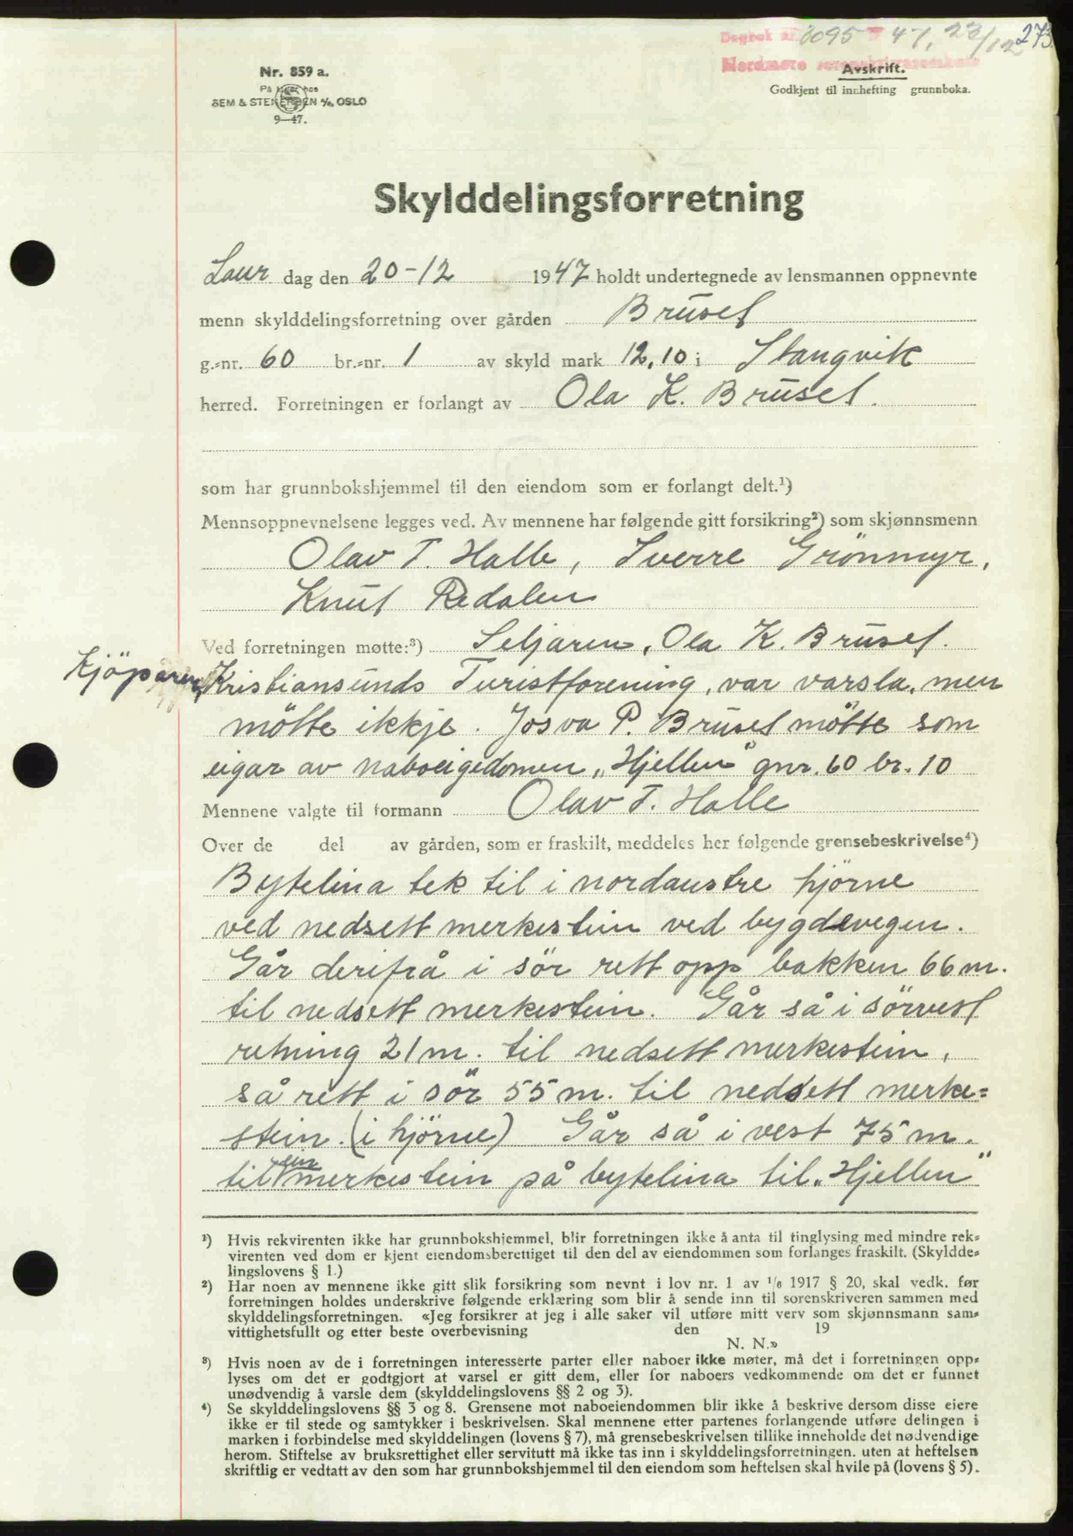 Dagbok nr. 3095 B 47, 23/12 273
Nordmøre sorenskriverembete
Nr. 859 a.
På lager hos
SEM & STENERSEN A/S, OSLO
9—47.
Avskrift.
Godkjent til innhefting grunnboka.
Skylddelingsforretning
Laur dag den 20-12 1947 holdt undertegnede av lensmannen oppnevnte
menn skylddelingsforretning over gården Brüset
g.-nr. 60 br.-nr. 1 av skyld mark 12,10 i Stangvik
herred. Forretningen er forlangt av Ola K. Brüset.
som har grunnbokshjemmel til den eiendom som er forlangt delt.¹)
Mennsoppnevnelsene legges ved. Av mennene har følgende gitt forsikring²) som skjønnsmenn
Olav T. Halle, Sverre Grönmyr,
Knut Redalen
Ved forretningen møtte:³) Seljaren, Ola K. Brüset.
Kjöparen, Kristiansunds Turistforening, var varsla, men
mötte ikkje. Josva P. Brüset mötte som
eigar av naboeigedomen „Hjellen" gnr. 60 br. 10
Mennene valgte til formann Olav T. Halle
Over de del av gården, som er fraskilt, meddeles her følgende grensebeskrivelse⁴)
Bytelina tek til i nordaustre hjörne
ved nedsett merkestein ved bygdevegen.
Går derifrå i sör rett opp bakken 66 m.
til nedsett merkestein. Går så i sörvest
retning 21 m. til nedsett merkestein,
så rett i sör 55 m. til nedsett merke=
stein. (i hjörne) Går så i vest 75 m.
til ein merkestein på bytelina til „Hjellen"
¹) Hvis rekvirenten ikke har grunnbokshjemmel, blir forretningen ikke å anta til tinglysing med mindre rek-
virenten ved dom er kjent eiendomsberettiget til den del av eiendommen som forlanges fraskilt. (Skyldde-
lingslovens § 1.)
²) Har noen av mennene ikke gitt slik forsikring som nevnt i lov nr. 1 av ¹/₆ 1917 § 20, skal vedk. før
forretningen holdes underskrive følgende erklæring som blir å sende inn til sorenskriveren sammen med
skylddelingsforretningen. «Jeg forsikrer at jeg i alle saker vil utføre mitt verv som skjønnsmann sam-
vittighetsfullt og etter beste overbevisning den 19
N. N.»
³) Hvis noen av de i forretningen interesserte parter eller naboer ikke møter, må det i forretningen opp-
lyses om det er godtgjort at varsel er gitt dem, eller for naboers vedkommende om det er funnet
unødvendig å varsle dem (skylddelingslovens §§ 2 og 3).
⁴) Se skylddelingslovens §§ 3 og 8. Grensene mot naboeiendommen blir ikke å beskrive dersom disse eiere
ikke er til stede og samtykker i beskrivelsen. Skal mennene etter partenes forlangende utføre delingen i
marken i forbindelse med skylddelingen (lovens § 7), må grensebeskrivelsen tillike inneholde det nødvendige
herom. Stiftelse av bruksrettighet eller servitutt må ikke tas inn i skylddelingsforretningen. uten at heftelsen
skriftlig er vedtatt av den som har grunnbokshjemmel til den eiendom som heftelsen skal hvile på (lovens § 5).